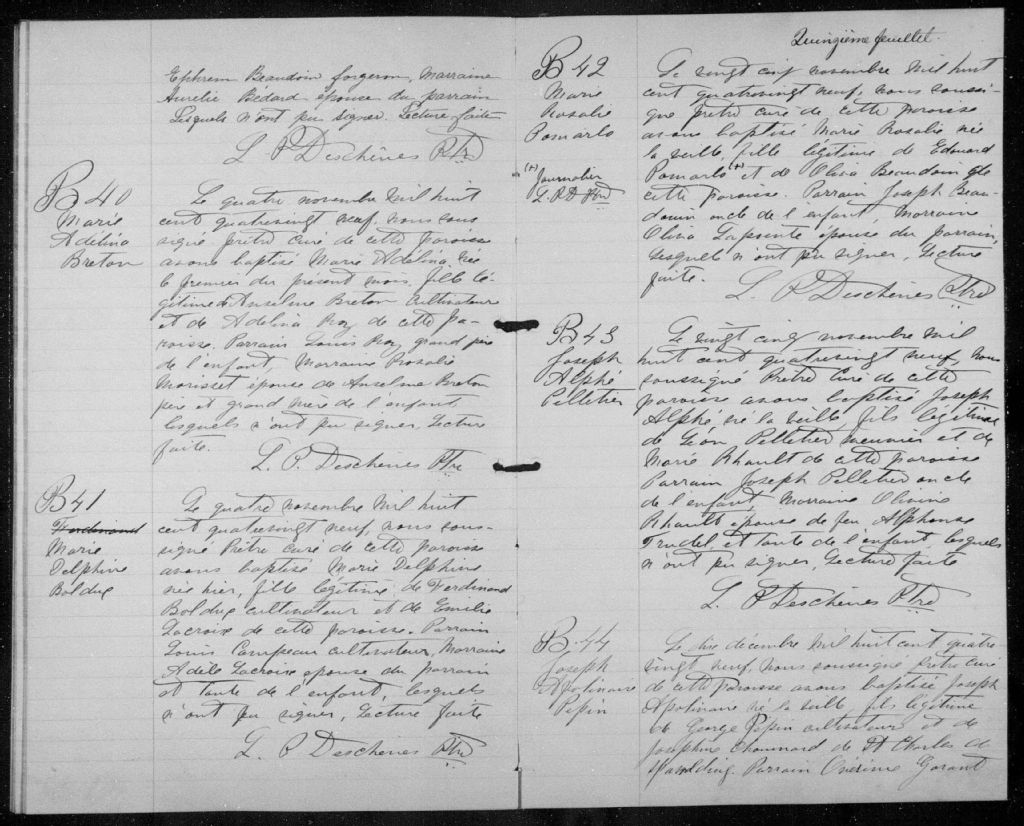 Ephrem Beaudoin forgeron, Marraine
Aurelie Bédard épouse du parrain
Lesquels n'ont pu signer. Lecture faite
L P Deschênes Ptre
B 40
Marie
Adelina
Breton
Le quatre novembre Mil huit
cent quatrevingt neuf, nous sous
signé prêtre curé de cette paroisse
avons baptisé Marie Adelina née
le premier du présent mois, fille lé-
gitime de Anselme Breton cultivateur
et de Adelina Roy de cette pa-
roisse. Parrain Louis Roy grand père
de l'enfant, Marraine Rosalie
Morisset épouse de Anselme Breton
père et grand mère de l'enfant
lesquels n'ont pu signer, Lecture
faite.
L. P. Deschênes Ptre
B 41
Ferdinand
Marie
Delphine
Bolduc
Le quatre novembre Mil huit
cent quatrevingt neuf, nous sous-
signé Prêtre curé de cette paroisse
avons baptisé Marie Delphine
née hier, fille légitime de Ferdinand
Bolduc cultivateur et de Emilie
Lacroix de cette paroisse. Parrain
Louis Campeau cultivateur, Marraine
Adèle Lacroix epouse du parrain
et tante de l'enfant, lesquels
n'ont pu signer, Lecture faite
L P Deschênes Ptre
Quinzième feuillet.
B 42
Marie
Rosalie
Pomarlo
(+)
Journalier
L. P. D Ptre
Le vingt cinq novembre Mil huit
cent quatrevingt neuf, nous soussi-
gné prêtre curé de cette paroisse
avons baptisé Marie Rosalie née
la veille, fille légitime de Edouard
Pomarlo (+) et de Oliva Beaudoin de
cette paroisse. Parrain Joseph Beau-
douin oncle de l'enfant, Marraine
Oliva Lapointe épouse du parrain,
lesquels n'ont pu signer, Lecture
faite.
L. P Deschênes Ptre
B 43
Joseph
Alphé
Pelletier
Le vingt cinq novembre Mil
huit cent quatrevingt neuf, Nous
soussigné Prêtre Curé de cette
paroisse avons baptisé Joseph
Alphé né la veille, fils légitime
de Léon Pelletier meunier et de
Marie Rhault de cette paroisse
Parrain Joseph Pelletier oncle
de l'enfant, Marraine Olivine
Rhault épouse de feu Alphonse
Trudel, et tante de l'enfant, lesquels
n'ont pu signer, Lecture faite
L. P Deschênes Ptre
B. 44
Joseph
Apolinaire
Pepin
Le dix décembre Mil huit cent quatre
vingt neuf, Nous soussigné Prêtre curé
de cette Paroisse avons baptisé Joseph
Apolinaire né la veille, fils légitime
de George Pepin cultivateur et de
Josephine Chouinard de St Charles de
Spaulding. Parrain Onésime Garant